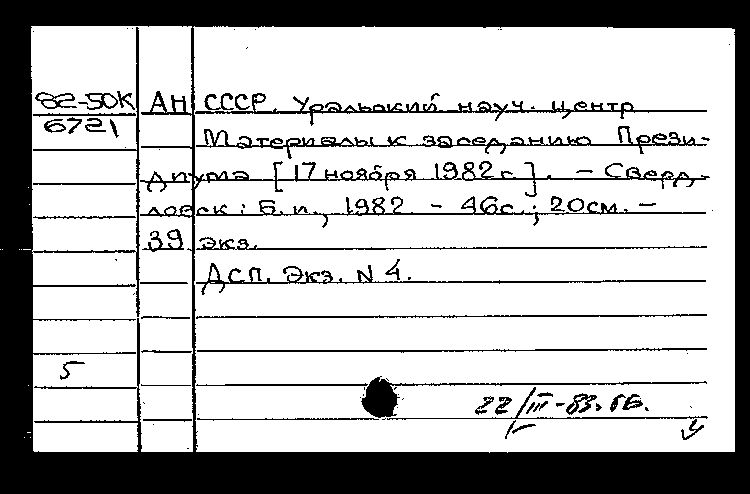 82-50К АН СССР. Уральский науч. центр
6721
Материалы к заседанию Прези-
диума [17 ноября 1982 г.]. – Сверд-
ловск: Б.и., 1982. – 46с.; 20см. –
39 экз.
ДСП. Экз. N 4.
5
22/III-83.